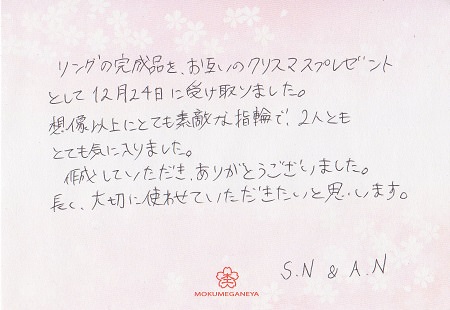 リングの完成品を、お互いのクリスマスプレゼント
として12月24日に受け取りました。
想像以上にとても素敵な指輪で、2人とも
とても気に入りました。
作成していただき、ありがとうございました。
長く、大切に使わせていただきたいと思います。
S.N & A.N
MOKUMEGANEYA